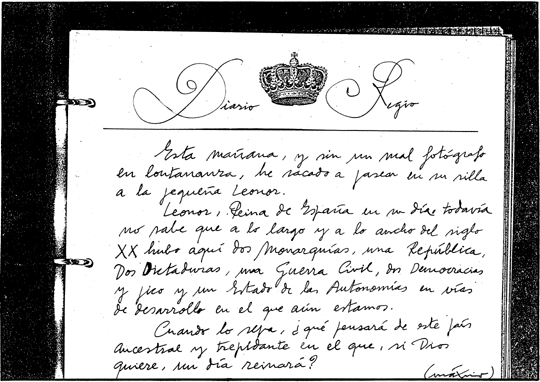 Diario Regio
Esta mañana, y sin un mal fotógrafo
en lontananza, he sacado a pasear en su silla
a la pequeña Leonor.
Leonor, Reina de España en su día, todavía
no sabe que a lo largo y a lo ancho del siglo
XX hubo aquí dos Monarquías, una República,
Dos Dictaduras, una Guerra Civil, dos Democracias
y pico y un Estado de las Autonomías en vías
de desarrollo en el que aún estamos.
Cuando lo sepa, ¿qué pensará de este país
ancestral y trepidante en el que, si Dios
quiere, un día reinará?
(máximo)